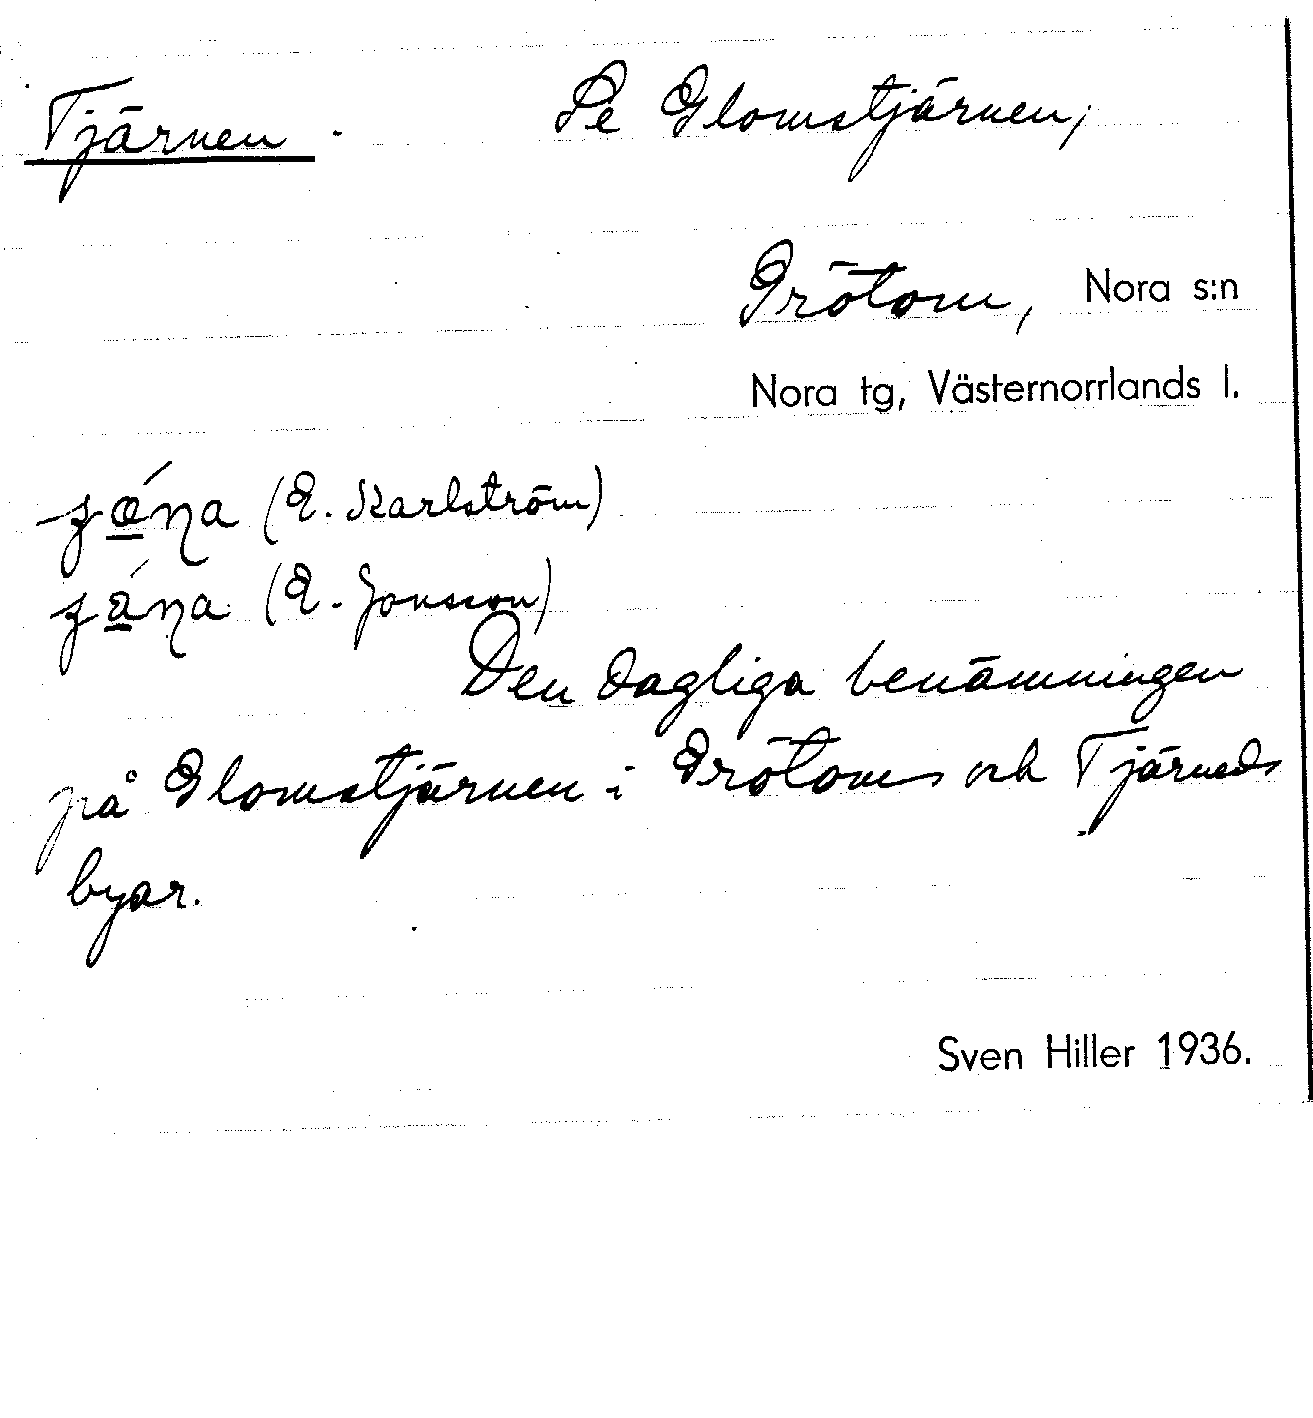 Tjärnen. Se Glomstjärnen,
Grötom, Nora s:n
Nora tg, Västernorrlands l.
(E. Karlström)
(E. Jonsson)
Den dagliga benämningen
på Glomstjärnen i Grötoms och Tjärneds
byar.
Sven Hiller 1936.